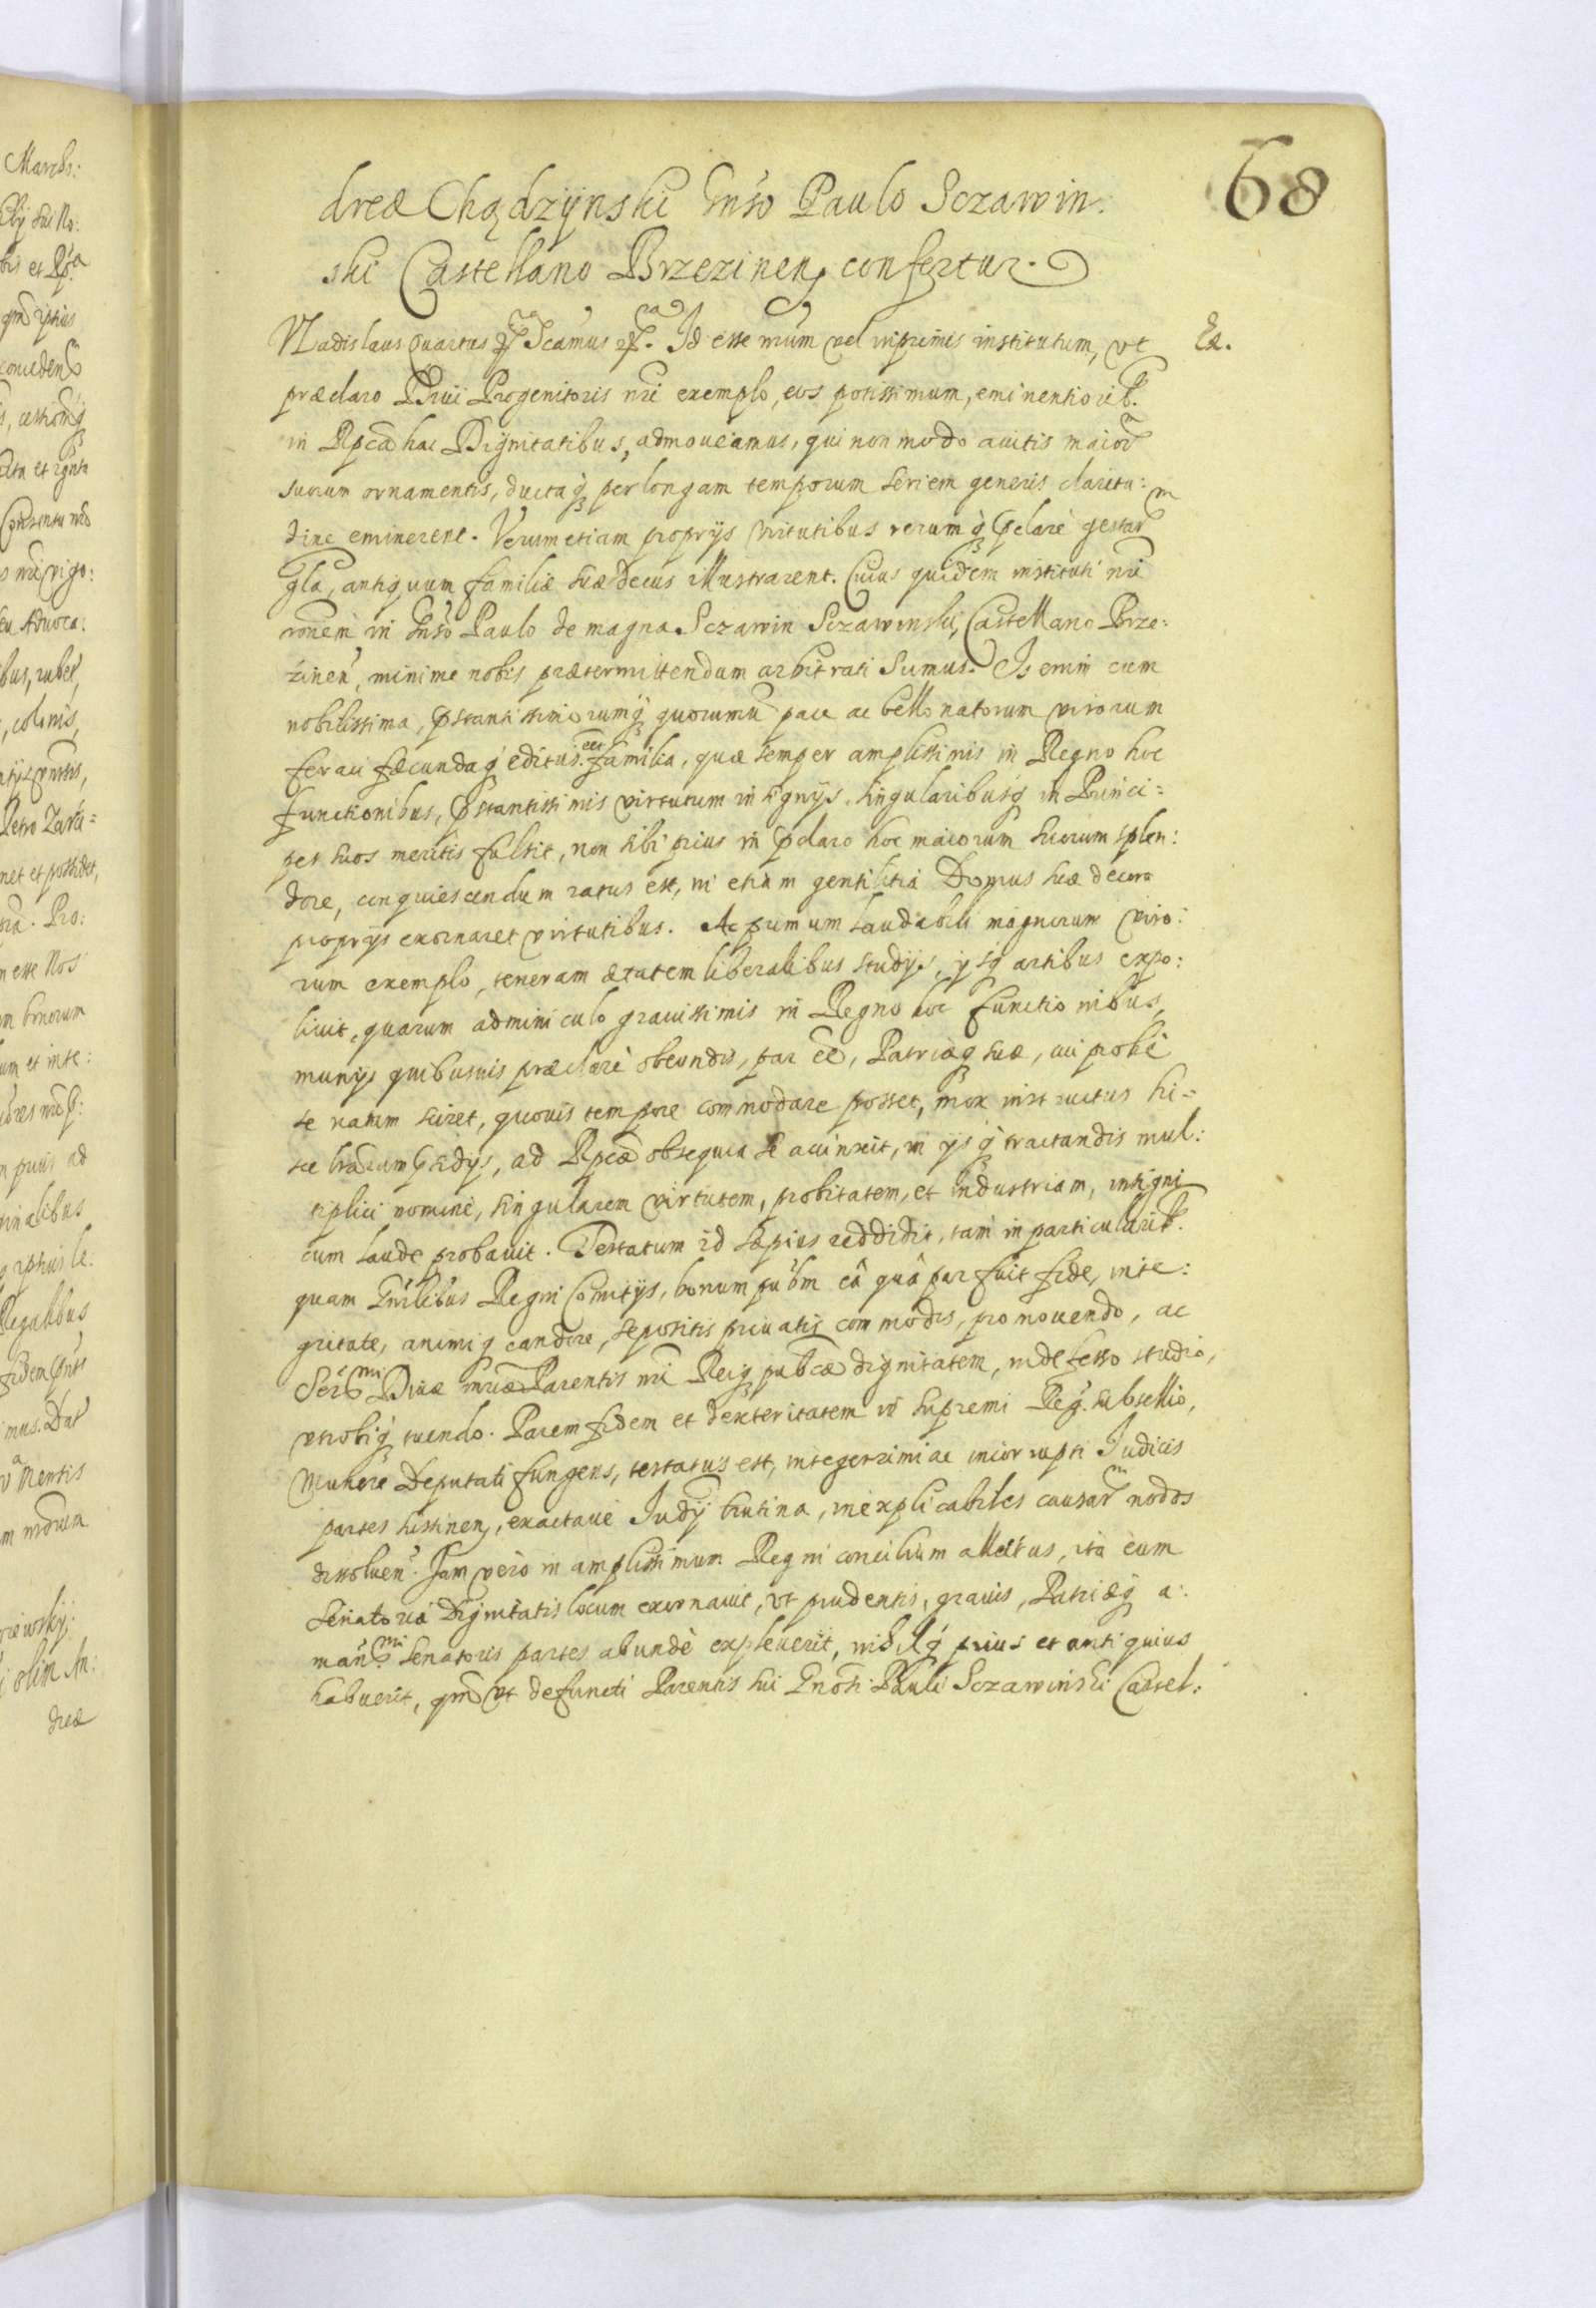 68
dreæ Chądzÿnski Gnso Paulo Sczawin:
ski Castellano Brzezinen. confertur.
Vladislaus Quartus etc. Scamus etc. Id esse nrum vel inprimis institutum, vt
Ex.
præclaro Diui Progenitoris nri exemplo, eos potissimum, eminentiorib.
in Rpca hac Dignitatibus, admoueamus, qui non modo auitis maior
suorum ornamentis, ductaq per longam temporum seriem generis claritu:
dine eminerent. Verum etiam proprijs virtutibus rerumq pclare gestarm
gla, antiquum familiæ suæ decus illustrarent. Cuius quidem instituti nri
ronem in Gnso Paulo de magna Sczawin Sczawinski, Castellano Brze:
zinen, minime nobis prætermittendum arbitrati sumus. Is enim cum
nobilissima, pstantissimorumq quorumu pace ac bello natorum virorum
feraci fæcundaq editus est familia, quæ semper amplissimis in Regno hoc
functionibus, pstantissimis virtutum insignijs, singularibusq in Princi=
pes suos meritis fulsit, non sibi prius in pclaro hoc maiorum suorum splen:
dore, conquiescendum ratus est, ni etiam gentilitia Domus suæ decora
proprijs exornaret virtutibus. Ac primum laudabili magnorum viro:
rum exemplo, teneram ætatem liberalibus studijs, ijsq artibus expo:
liuit, quarum adminiculo grauissimis in Regno hoc functionibus,
munijs quibusuis præclare obeundis, par ee, Patriæq suæ, cui probe
se natum sciret, quouis tempore commodare posset, mox instructus hi=
sce brarum psidijs, ad Rpcæ obsequia se accinxit, in ijsq tractandis mul:
tiplici nomine, singularem virtutem, probitatem, et industriam, insigni
cum laude probauit. Testatum id sæpius reddidit, tam in particularib.
quam Gnrlibus Regni Comitijs, bonum pubm eâ quâ par fuit fide, inte:
gritate, animiq candore, sepositis priuatis commodis, promouendo, ac
Sermi Diuæ mriæ Parentis nri Reiq pubcæ dignitatem, indefesso studio,
vtrobiq tuendo. Parem fidem et dexteritatem in supremi Reg. subsellio,
Munere Deputati fungens, testatus est, integerrimi ac incorrupti Iudicis
partes sustinen, exactaue Iudij trutina, inexplicabiles causarm nodos
dissoluen. Jam vero in amplissimum Regni concilium allectus, ita eum
Senatoriæ Dignitatis locum exornauit, vt prudentis, grauis, Patriæq a:
manmi Senatoris partes abunde expleuerit, nihilq prius et antiquius
habuerit, qm vt defuncti Parentis sui Gnosi Pauli Sczawinski Castel: